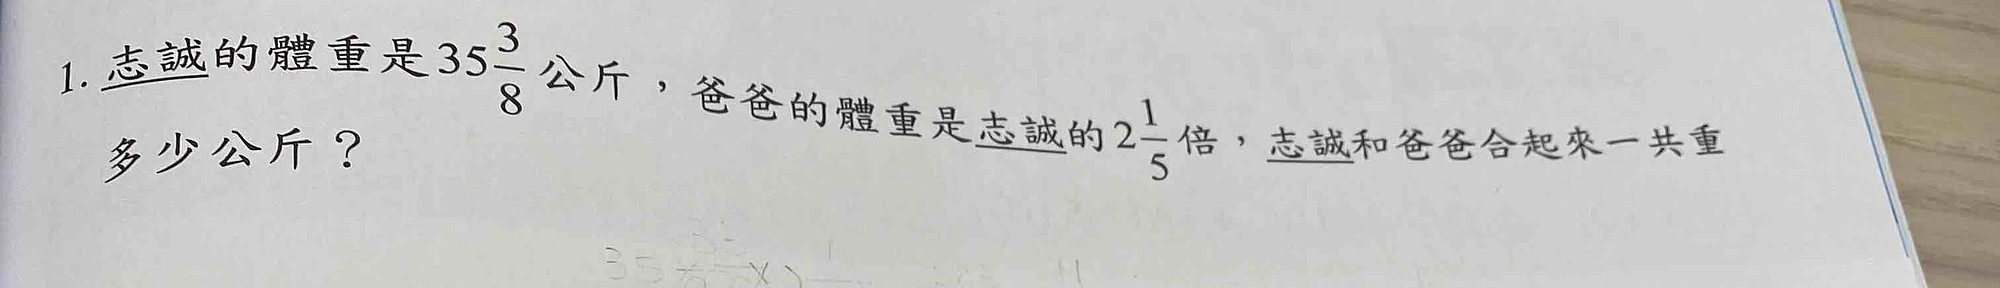 1. 志誠的體重是35 3/8 公斤，爸爸的體重是志誠的2 1/5 倍，志誠和爸爸合起來一共重
多少公斤？